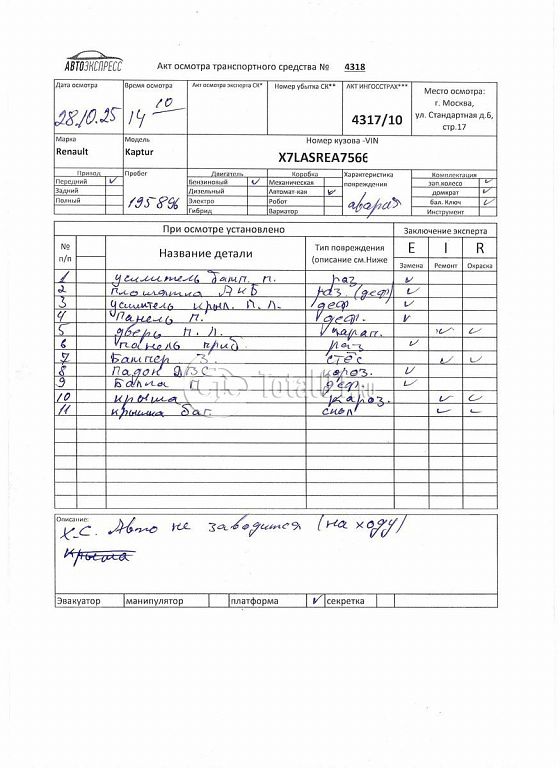 АВТОЭКСПРЕСС
Акт осмотра транспортного средства № 4318
Дата осмотра Время осмотра Акт осмотра эксперта СК* Номер убытка СК** АКТ ИНГОССТРАХ*** Место осмотра:
28.10.25 14 10 4317/10 г. Москва,
ул. Стандартная д.6,
стр.17
Марка Модель Номер кузова -VIN
Renault Kaptur X7LASREA756
Привод Пробег Двигатель Коробка Характеристика повреждения Комплектация
Передний ✓ 195896 Бензиновый ✓ Механическая авария зап.колесо ✓
Задний Дизельный Автомат-кая ✓ домкрат ✓
Полный Электро Робот бал. Ключ ✓
Гибрид Вариатор Инструмент
При осмотре установлено Заключение эксперта
№ п/п Название детали Тип повреждения (описание см.Ниже E I R
Замена Ремонт Окраска
1 усилитель бамп. п. раз ✓
2 площадка АКБ раз. (деф) ✓
3 усилитель крыл. П. Л. деф ✓
4 Панель п. деф. ✓
5 дверь п. Л. царап. ✓ ✓
6 панель приб. раз ✓
7 Бампер З. стёс ✓ ✓
8 короз. ✓
9 Балка п деф. ✓
10 крыша кароз. ✓ ✓
11 крышка баг скол ✓ ✓
Totall
Описание:
Х.С. Авто не заводится (на ходу)
Крыша
Эвакуатор манипулятор платформа ✓ секретка